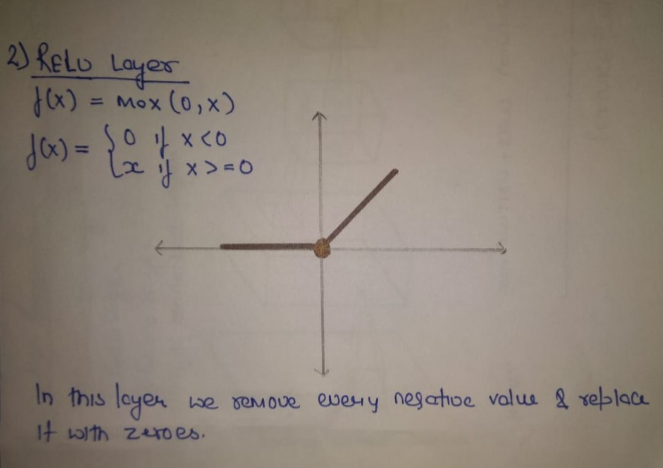 2) RELU Layer
f(x) = max(0,x)
f(x) = { 0 if x<0
x if x>=0
In this layer we remove every negative value & replace
it with zeroes.